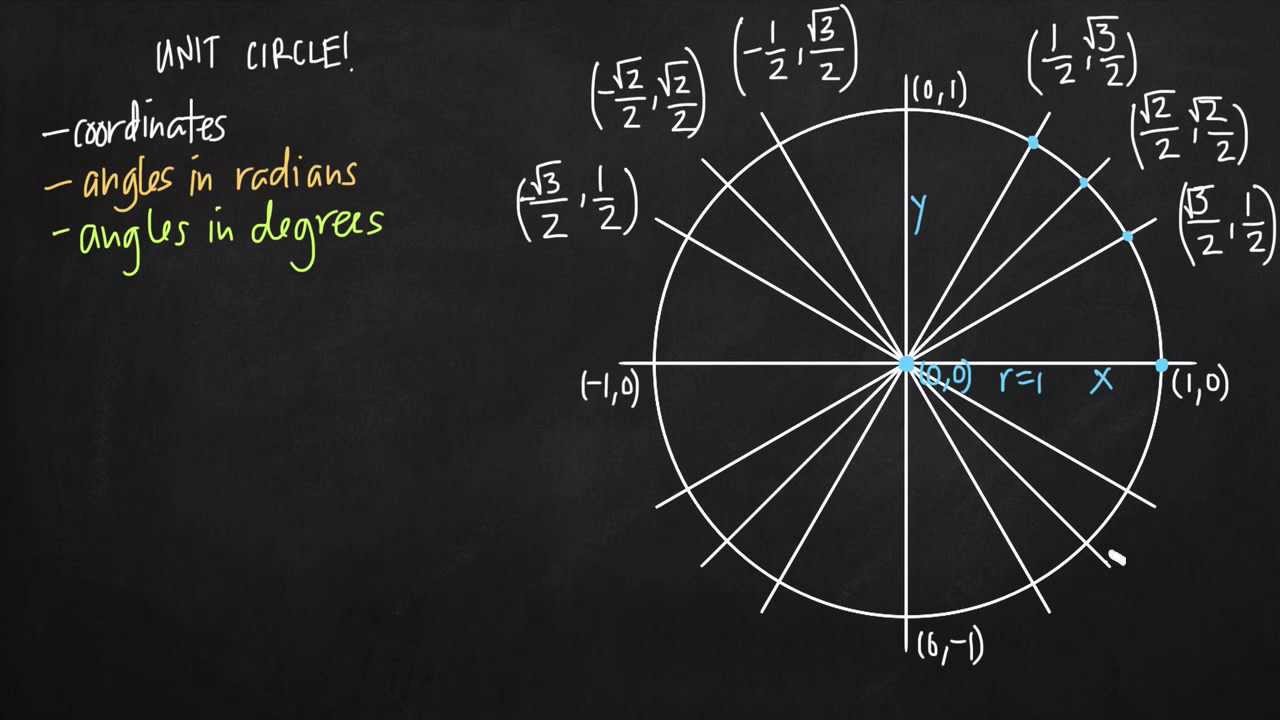 UNIT CIRCLE!
- coordinates
- angles in radians
- angles in degrees
(-1/2, √3/2)
(1/2, √3/2)
(-√2/2, √2/2)
(0,1)
(√2/2, √2/2)
(-√3/2, 1/2)
(√3/2, 1/2)
y
(-1,0)
(0,0) r=1 x
(1,0)
(0,-1)